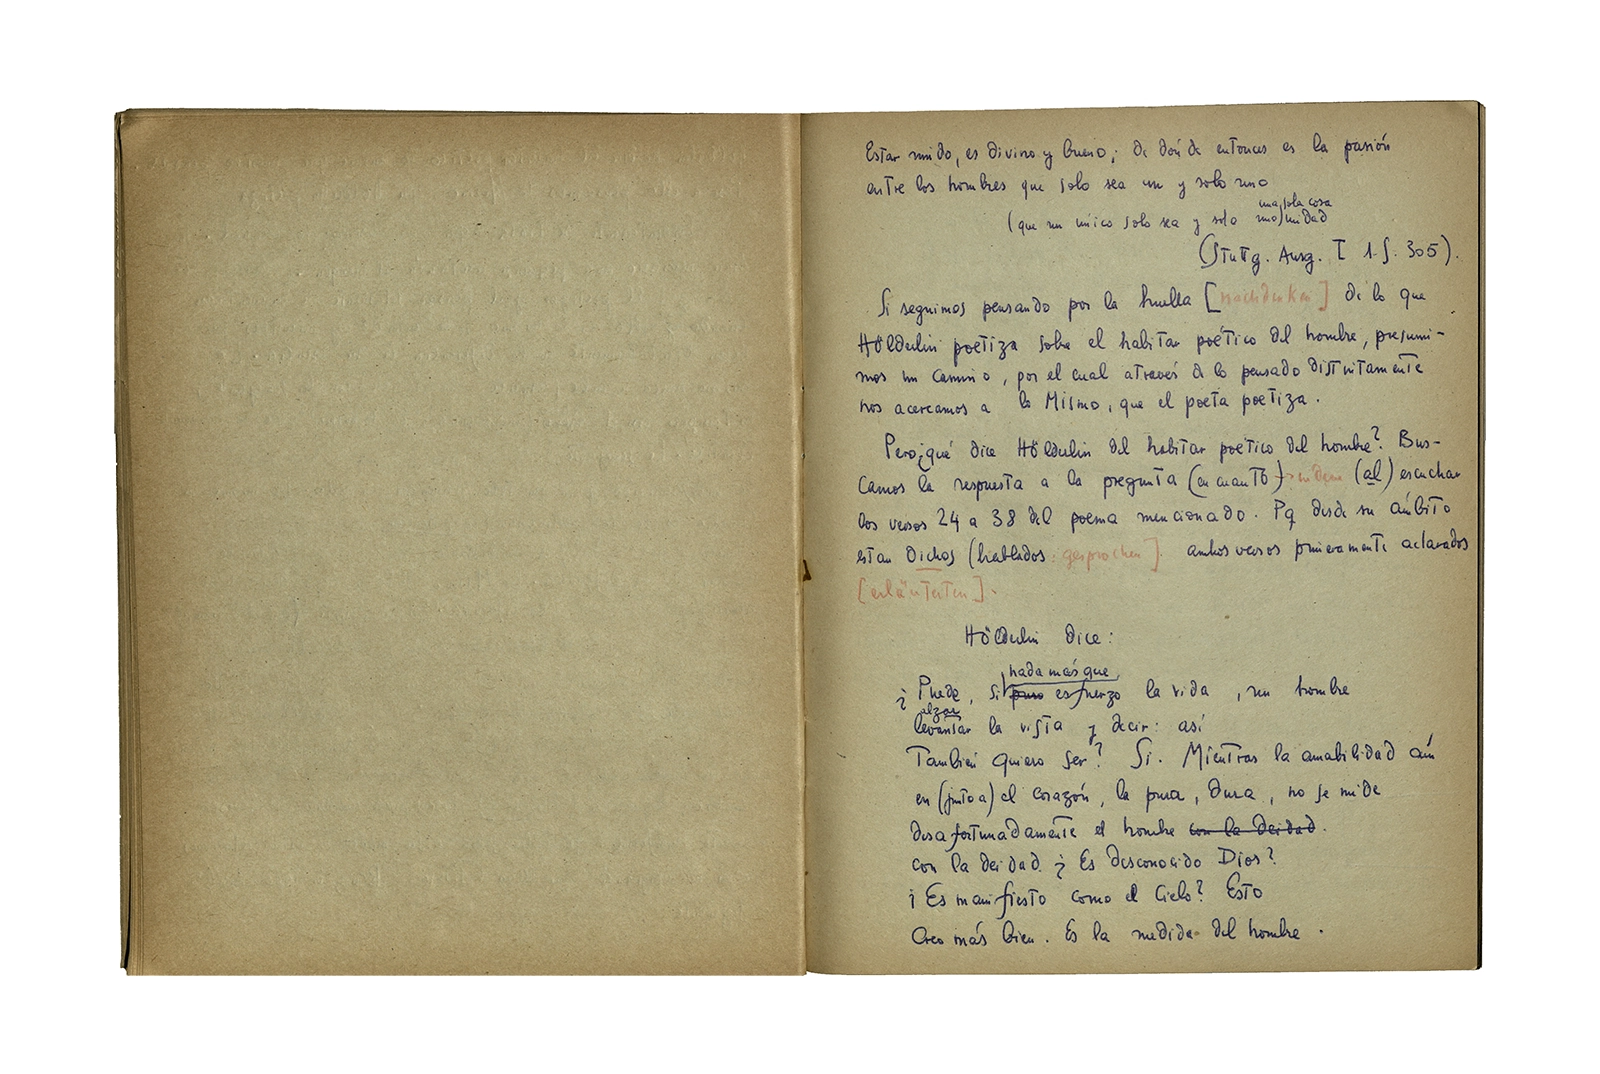 Estar unido, es divino y bueno; de dónde entonces es la pasión
entre los hombres que solo sea un y solo uno
una sola cosa
(que un único solo sea y solo uno/unidad
(Stuttg. Ausg. I 1. S. 305).
Si seguimos pensando por la huella [nachdenken] de lo que
Hölderlin poetiza sobre el habitar poético del hombre, presumi-
mos un camino, por el cual através de lo pensado distintamente
nos acercamos a lo Mismo, que el poeta poetiza.
Pero ¿qué dice Hölderlin del habitar poético del hombre? Bus-
camos la respuesta a la pregunta (en cuanto) indem (al) escuchar
los versos 24 a 38 del poema mencionado. Pq desde su ámbito
estan dichos (hablados: gesprochen]. ambos versos primeramente aclarados
[erläuterten].
Hölderlin dice:
nada más que
¿Puede, si puro esfuerzo la vida, un hombre
alzar
levantar la vista y decir: así
También quiero ser? Si. Mientras la amabilidad aún
en (junto a) el corazón, la pura, dura, no se mide
desafortunadamente el hombre con la deidad.
con la deidad. ¿Es desconocido Dios?
¿Es manifiesto como el Cielo? Esto
Creo más bien. Es la medida del hombre.